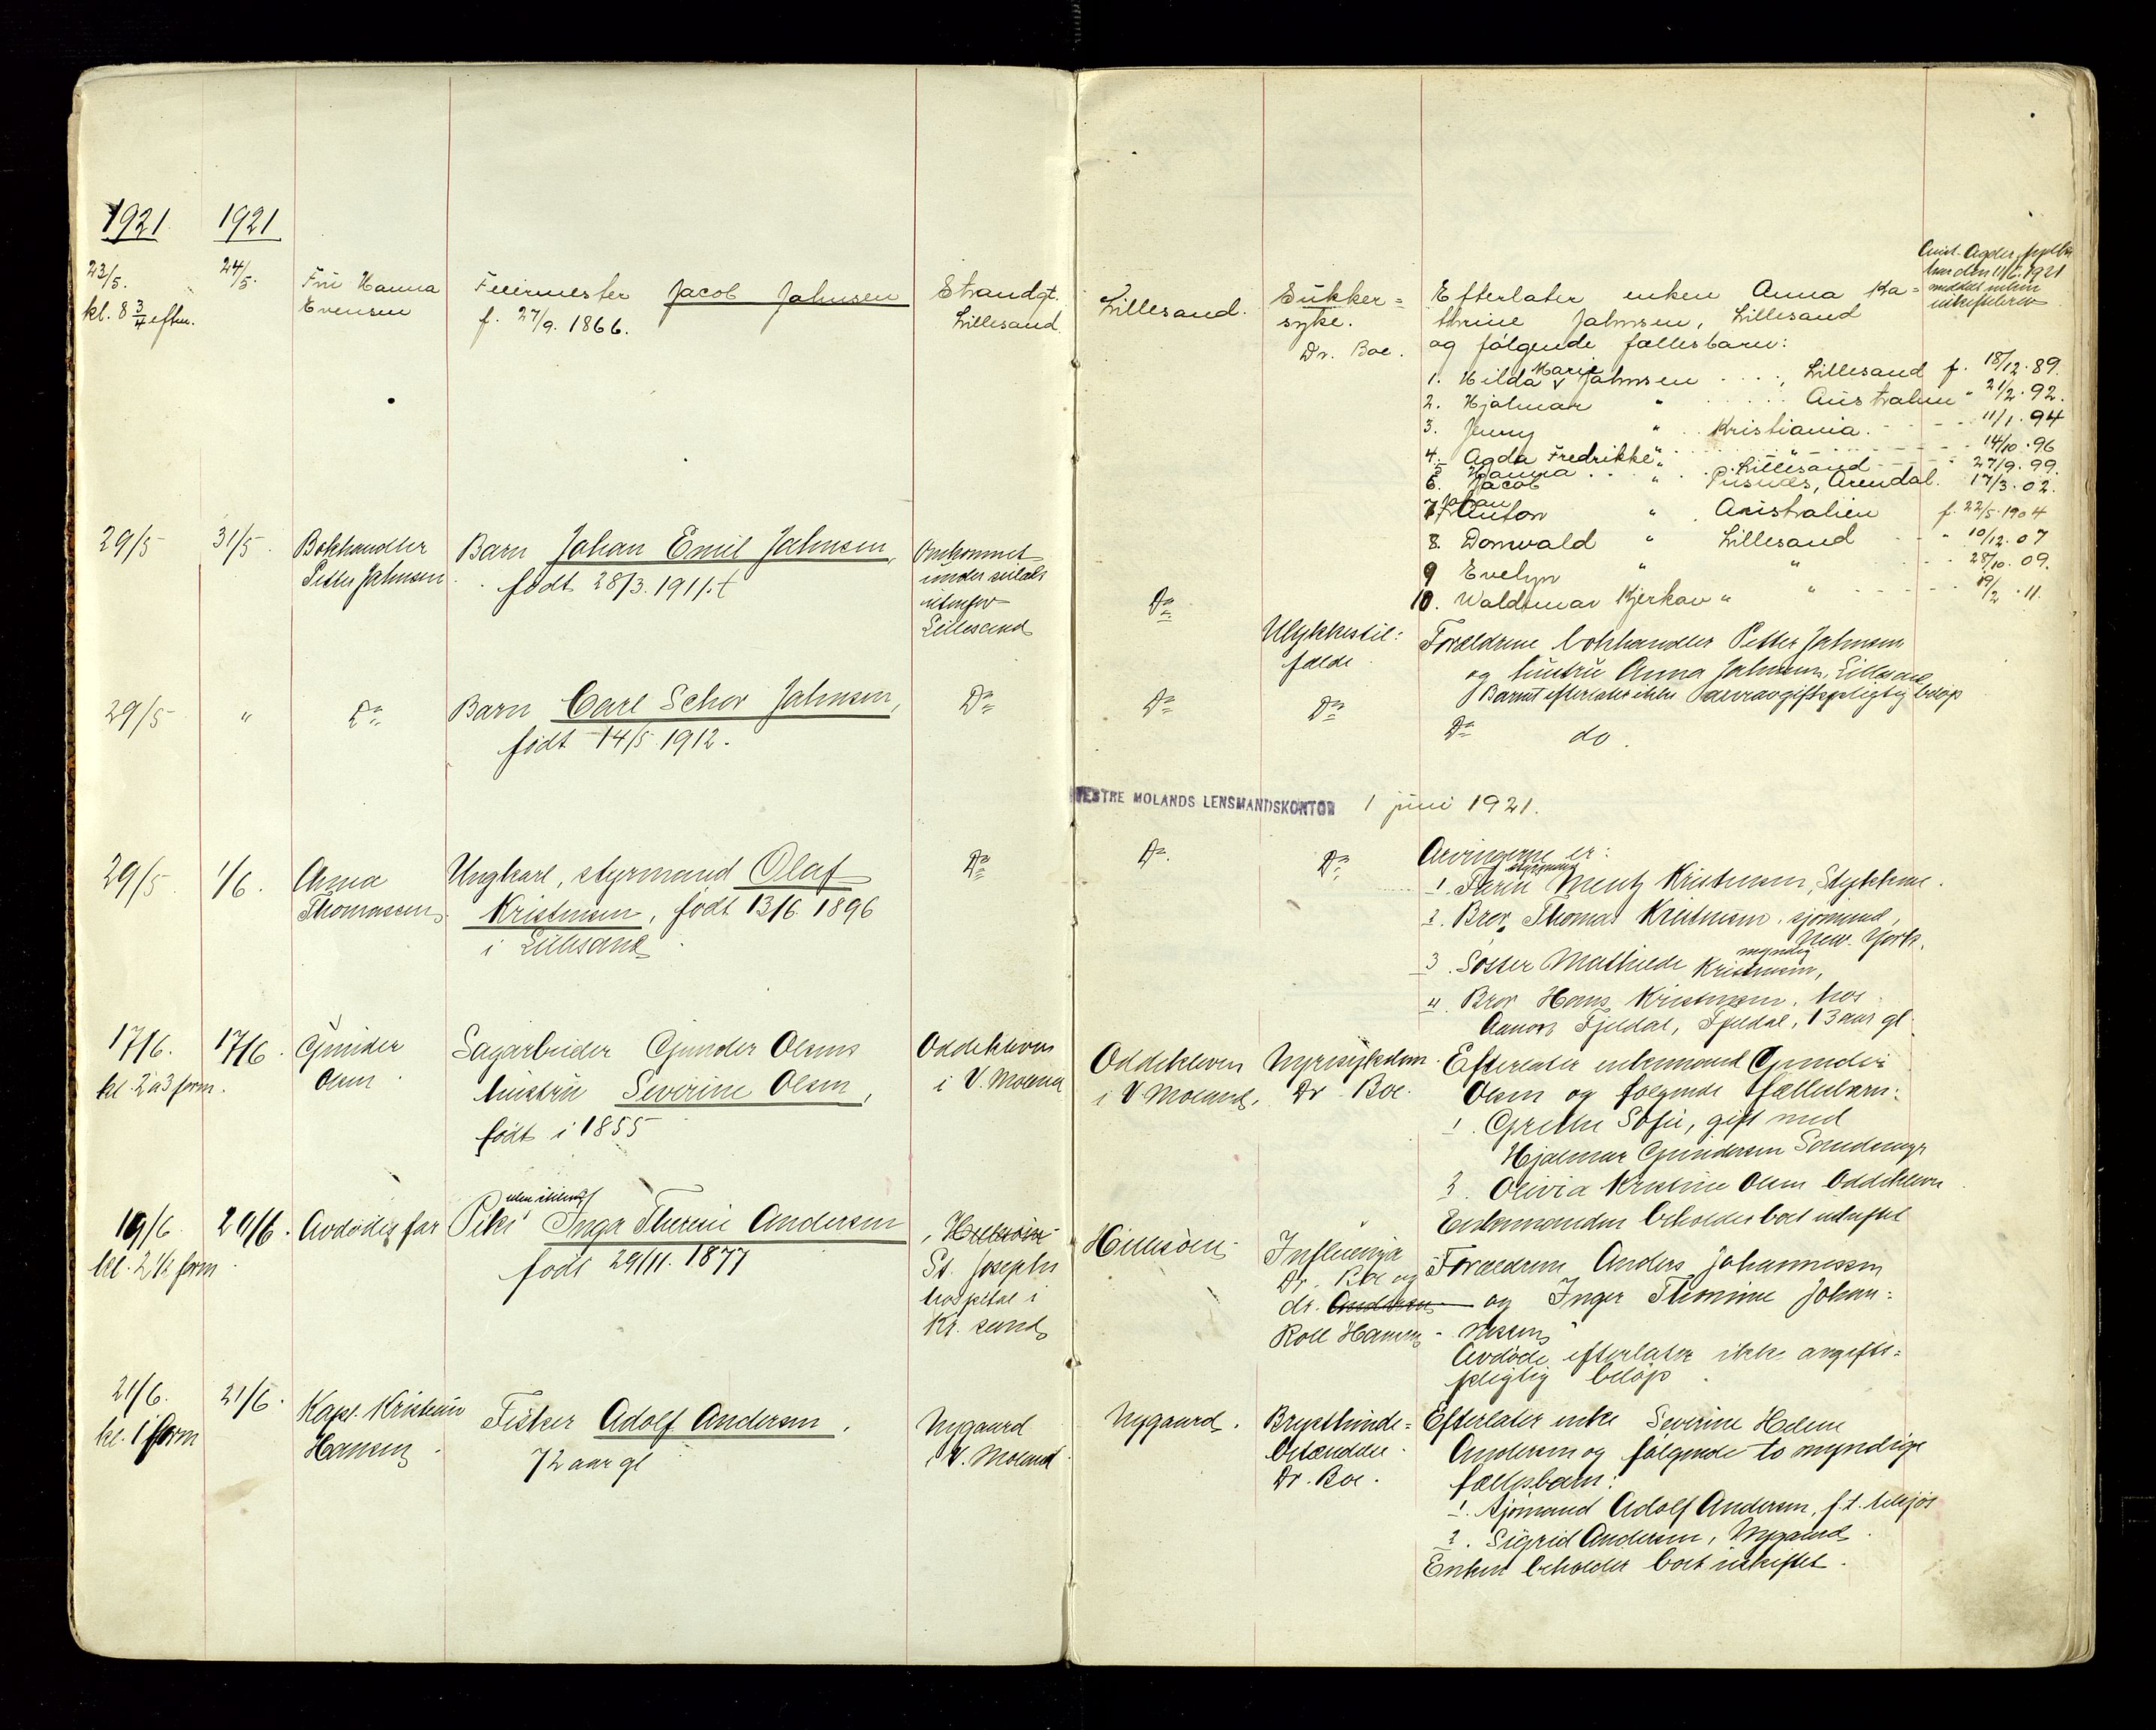 1921
1921
23/5.
kl. 8 3/4 eftm.
24/5.
Fru Hanna
Evensen
Feiermester Jacob Jahnsen
f. 27/9. 1866.
Strandgt.
Lillesand.
Lillesand.
Sukker=
syke.
Dr. Boe.
Efterlater enken Anna Ka=
thrine Jahnsen, Lillesand
og følgende fællesbarn:
1. Hilda Marie Jahnsen . . . , Lillesand f. 18/12. 89.
2. Hjalmar " . . . Australien " 21/2. 92.
3. Jenny " . . Kristiania. - - - 11/1. 94
4. Agda Fredrikke " . . . " - - - 14/10. 96
5 Hanna . . . " . . . Lillesand - - - 27/9. 99.
6. Jacob " Arendal. 17/3. 02.
7. Johan Anton " . Australien f. 22/5. 1904
8. Donvald " Lillesand - - " 10/12. 07
9 Evelyn " " . . . 28/10. 09.
10. Waldemar Kjerkov " " - - - 19/2. 11.
Aust-Agder
den 11/6. 1921
29/5
31/5.
Bokhandler
Petter Jahnsen
Barn Johan Emil Jahnsen,
født 28/3. 1911.
Omkommet
under seilads
utenfor
Lillesand
Do
Ulykkestil=
fælde
Forældrene bokhandler Petter Jahnsen
og hustru Anna Jahnsen, Lillesand
Barnet efterlater ikke arveavgiftspligtig beløp
29/5
"
Do
Barn Carl Schov Jahnsen,
født 14/5 1912.
Do
Do
Do
Do do.
VESTRE MOLANDS LENSMANDSKONTOR 1 juni 1921.
29/5.
1/6.
Anna
Thomassen.
Ungkarl, styrmand Olaf
Kristensen, født 13/6. 1896
i Lillesand.
Do
Do.
Do
Arvingerne er:
1. Farin Mentz Kristensen,
2. Bror, Thomas Kristensen, sjømand,
New-York.
3. Søster Mathilde Kristensen, myndig
4 Bror Hans Kristensen, hos
Fjeldal, Fjeldal, 13 aar gl.
17/6.
kl. 2 a 3 form.
17/6.
Gunder
Olsen.
Sagarbeider Gunder Olsens
hustru Severine Olsen,
født i 1855
Oddekleven
i V. Moland
Oddekleven
i V. Moland,
Nyresykdom.
Dr. Boe.
Efterlater enkemand Gunder
Olsen og følgende fællesbarn:
1. Grethe Sofie, gift med
Hjalmar Gundersen
2. Olivia Kristine Olsen Oddekleven
Enkemanden beholder boet uskiftet
19/6.
kl. 2 1/2 form.
20/6.
Avdødes far
Pike uten stilling Inga Therese Andersen
født 29/11. 1877
Hillesøen
St. Josephs
hospital i
Kr. sand
Hillesøen
Influenza
Dr. Boe og
dr. Andersen
Roll Hansen
Forældrene Anders Johannessen
og Inger Thomine Johan=
nessen
Avdøde efterlater ikke avgifts=
pligtig beløp.
21/6.
kl. 1 form
21/6.
Kapt. Kristian
Hansen.
Fisker Adolf Andersen.
72 aar gl
Nygaard
i V. Moland.
Nygaard.
Brysthinde=
betændelse.
Dr. Boe.
Efterlater enke Severine Helene
Andersen og følgende to myndige
fællesbarn:
1. Sjømand Adolf Andersen, f.t. tilsjøs
2. Sigrid Andersen, Nygaard.
Enken beholder boet uskiftet.